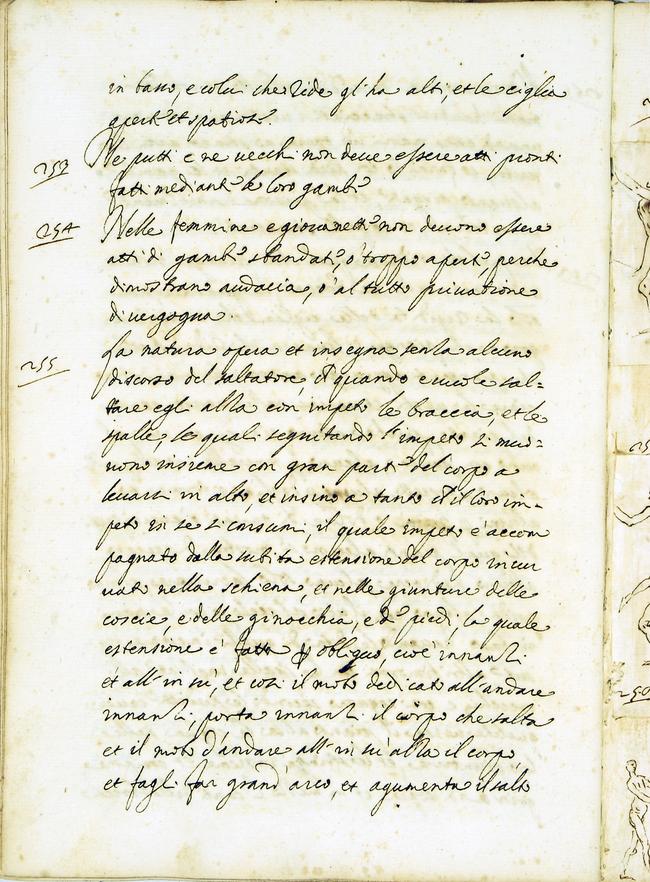 in basso, e colui che ride gl'ha alti, et le ciglia
aperte et spatiose.
253 Ne putti e ne vecchi non deve essere atti pronti
fatti mediante le loro gambe
254 Nelle femmine e giovanette non devono essere
atti di gambe sbandate, o' troppo aperte, perche
dimostrano audacia, o' al tutto privatione
di vergogna.
255 La natura opera et insegna senza alcuno
discorso del saltatore, che quando e vuole sal=
tare egli alza con impeto le braccia, et le
spalle, le quali seguitando l'impeto si muo=
vono insieme con gran parte del corpo a
levarsi in alto, et insino a tanto che il loro im=
peto in se si consumi, il quale impeto è accom
pagnato dalla subita estensione del corpo incur
vato nella schiena, et nelle giunture delle
coscie, e delle ginocchia, e de' piedi, la quale
estensione è fatta per obliquo, cioè innanzi
et all'in su', et così il moto dedicato all'andare
innanzi, porta innanzi il corpo che salta
et il moto d'andare all'in su' alza il corpo,
et fagli far grand'arco, et agumenta il salto